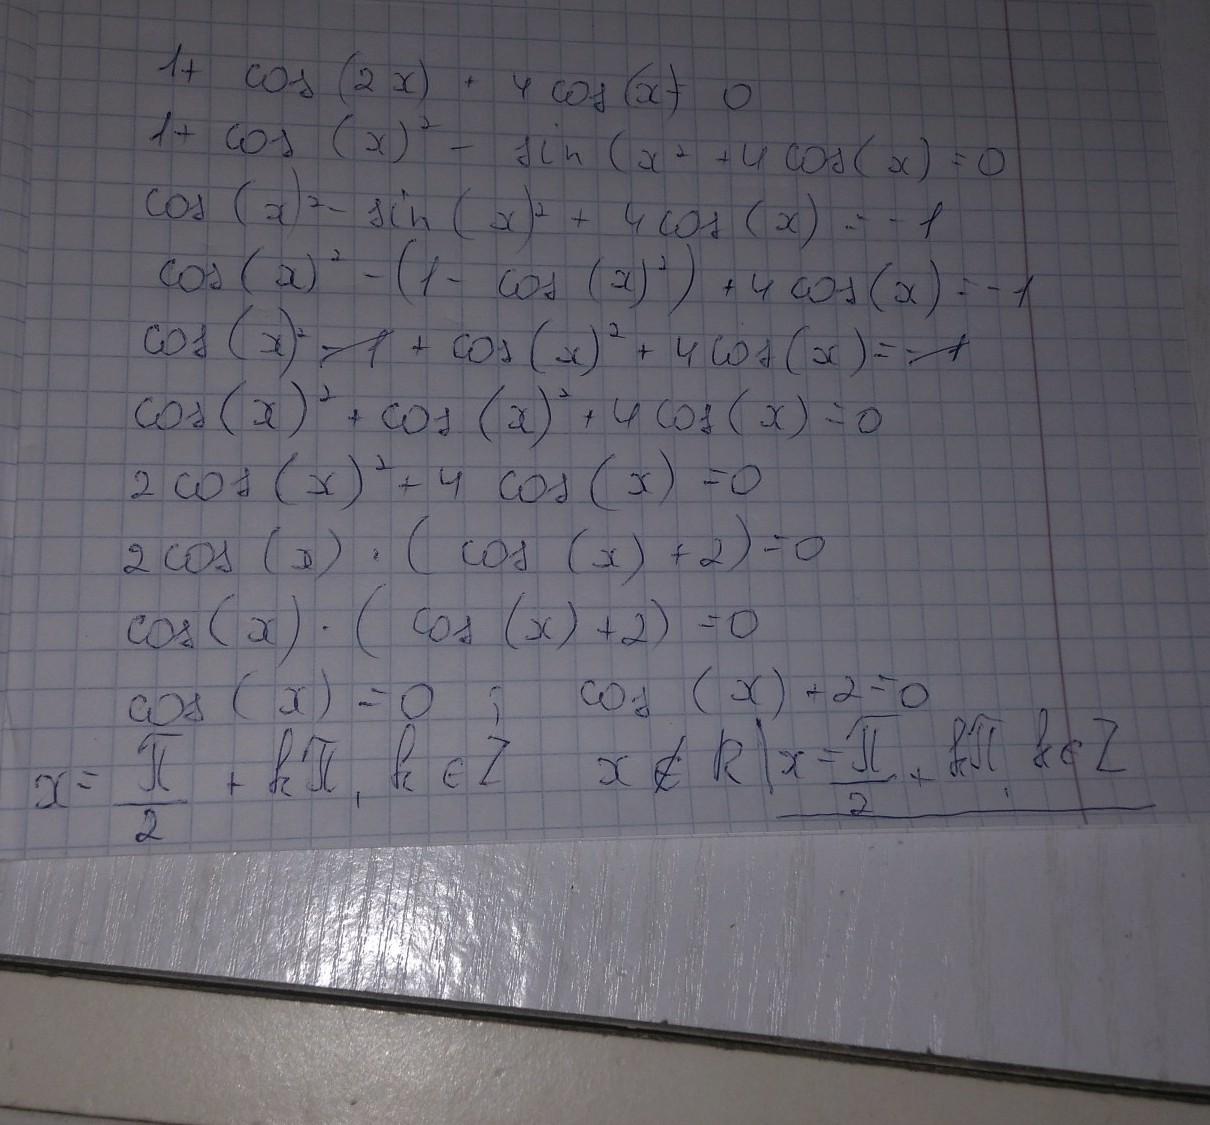 1+ cos (2x) + 4 cos (x) = 0
1+ cos (x)² - sin (x² + 4 cos(x) = 0
cos (x)² - sin (x)² + 4 cos (x) = -1
cos (x)² - (1 - cos (x)²) + 4 cos(x) = -1
cos (x)² - 1 + cos(x)² + 4 cos(x) = -1
cos(x)² + cos (x)² + 4 cos(x) = 0
2 cos (x)² + 4 cos (x) = 0
2 cos (x) · ( cos (x) + 2) = 0
cos(x) · ( cos (x) + 2) = 0
cos (x) = 0 ; cos (x) + 2 = 0
x = π/2 + kπ, k ∈ Z x ∉ R | x = π/2 + kπ, k ∈ Z